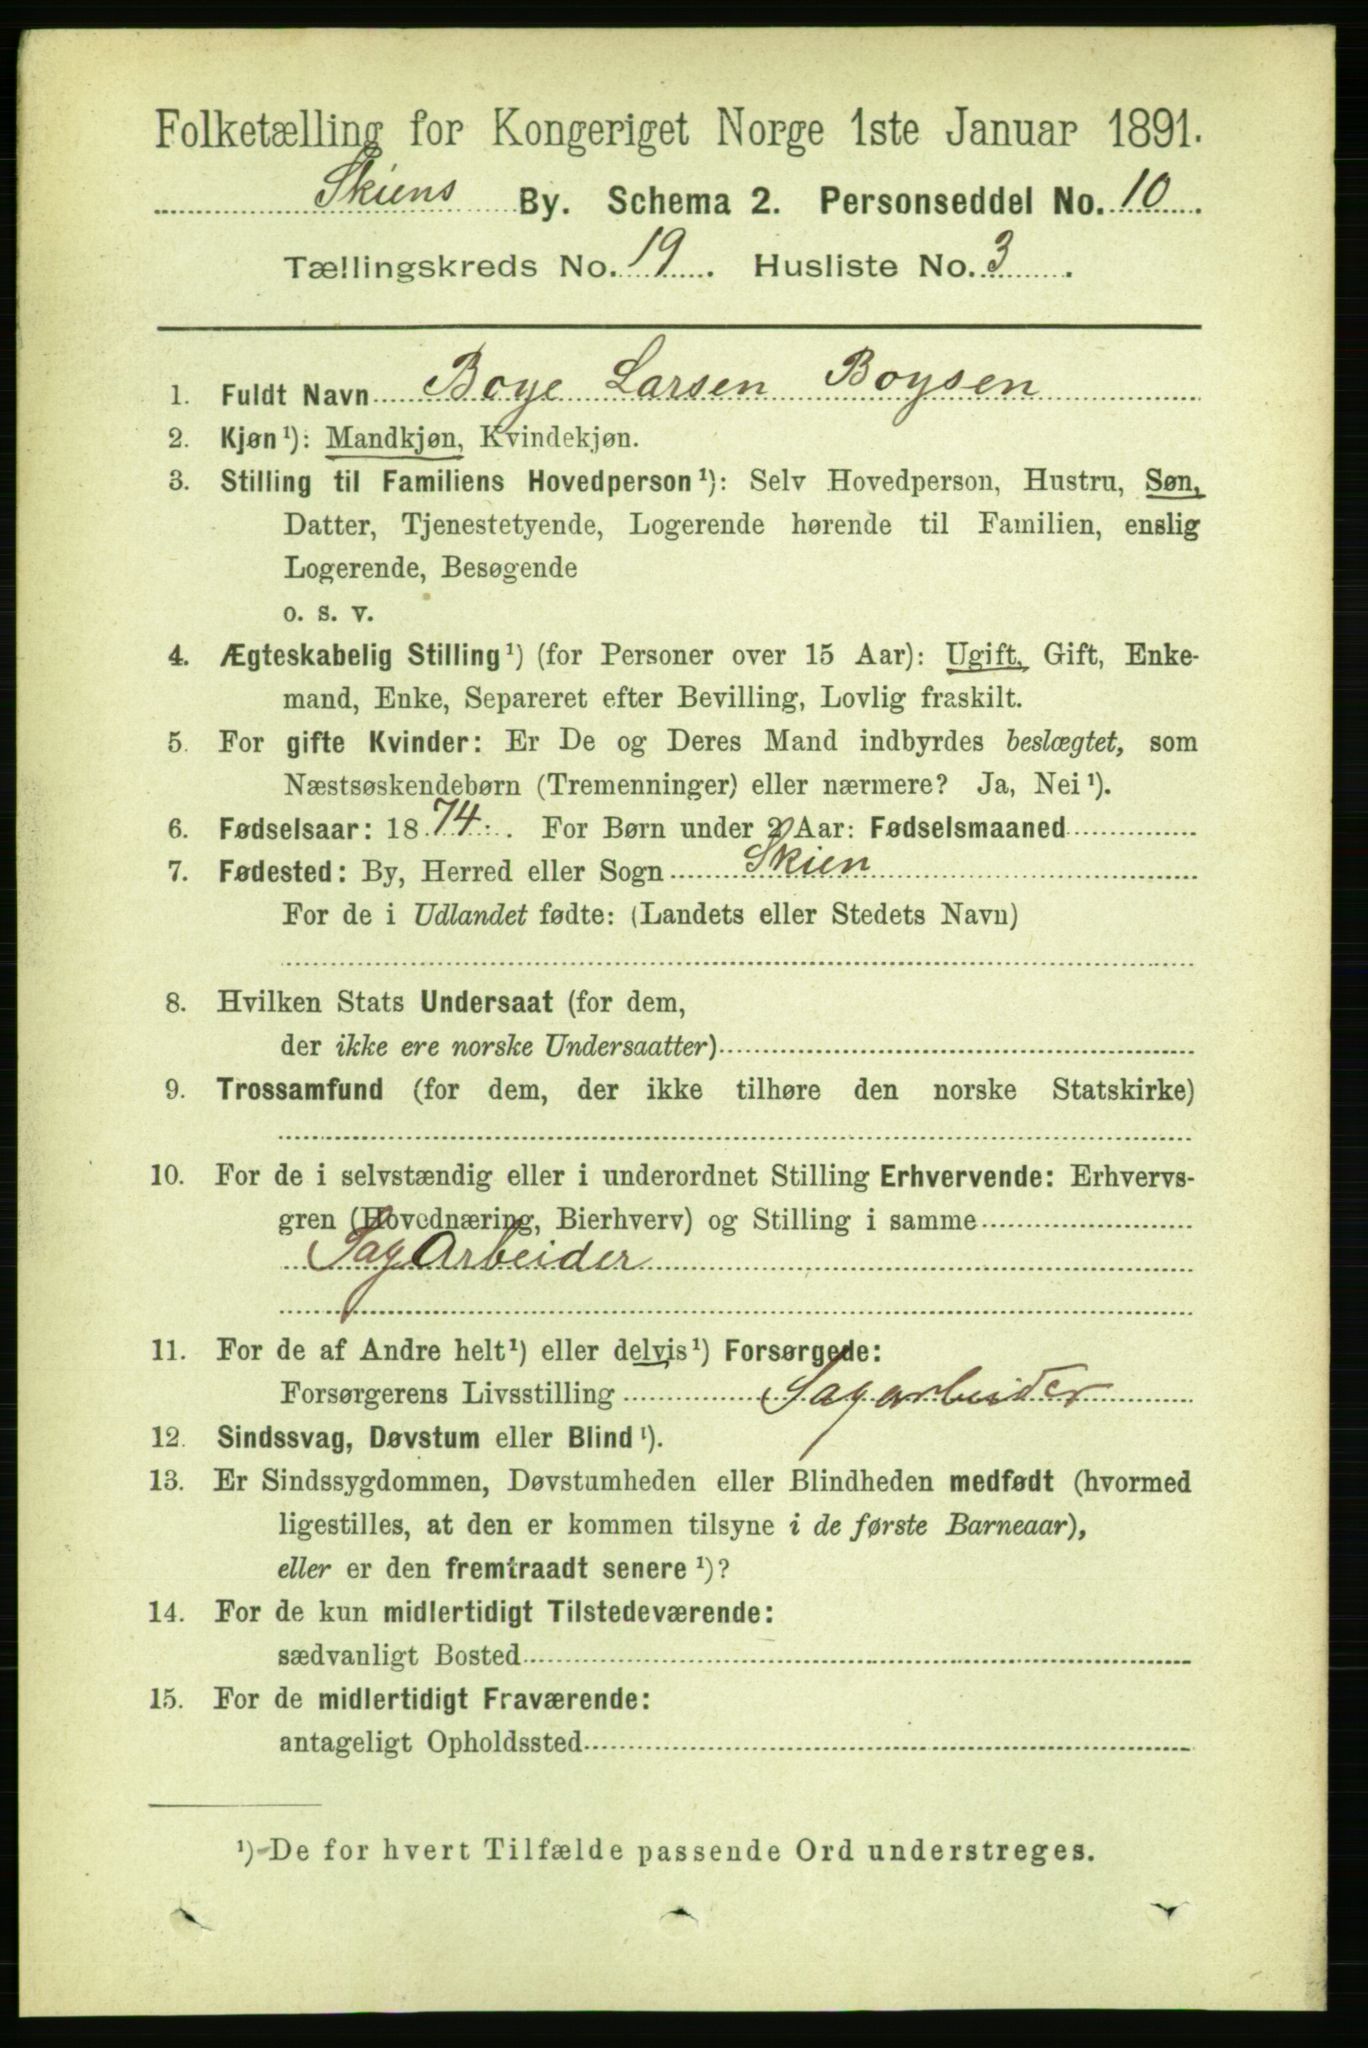 Folketælling for Kongeriget Norge 1ste Januar 1891.
Skiens By. Schema 2. Personseddel No. 10.
Tællingskreds No. 19. Husliste No. 3.
1. Fuldt Navn Boye Larsen Boysen
2. Kjøn¹): Mandkjøn, Kvindekjøn.
3. Stilling til Familiens Hovedperson¹): Selv Hovedperson, Hustru, Søn,
Datter, Tjenestetyende, Logerende hørende til Familien, enslig
Logerende, Besøgende
o. s. v.
4. Ægteskabelig Stilling¹) (for Personer over 15 Aar): Ugift, Gift, Enke-
mand, Enke, Separeret efter Bevilling, Lovlig fraskilt.
5. For gifte Kvinder: Er De og Deres Mand indbyrdes beslægtet, som
Næstsøskendebørn (Tremenninger) eller nærmere? Ja, Nei¹).
6. Fødselsaar: 1874. For Børn under 2 Aar: Fødselsmaaned
7. Fødested: By, Herred eller Sogn Skien
For de i Udlandet fødte: (Landets eller Stedets Navn)
8. Hvilken Stats Undersaat (for dem,
der ikke ere norske Undersaatter)
9. Trossamfund (for dem, der ikke tilhøre den norske Statskirke)
10. For de i selvstændig eller i underordnet Stilling Erhvervende: Erhvervs-
gren (Hovednæring, Bierhverv) og Stilling i samme
SagArbeider
11. For de af Andre helt¹) eller delvis¹) Forsørgede:
Forsørgerens Livsstilling Sagarbeider
12. Sindssvag, Døvstum eller Blind¹).
13. Er Sindssygdommen, Døvstumheden eller Blindheden medfødt (hvormed
ligestilles, at den er kommen tilsyne i de første Barneaar),
eller er den fremtraadt senere¹)?
14. For de kun midlertidigt Tilstedeværende:
sædvanligt Bosted
15. For de midlertidigt Fraværende:
antageligt Opholdssted
¹) De for hvert Tilfælde passende Ord understreges.